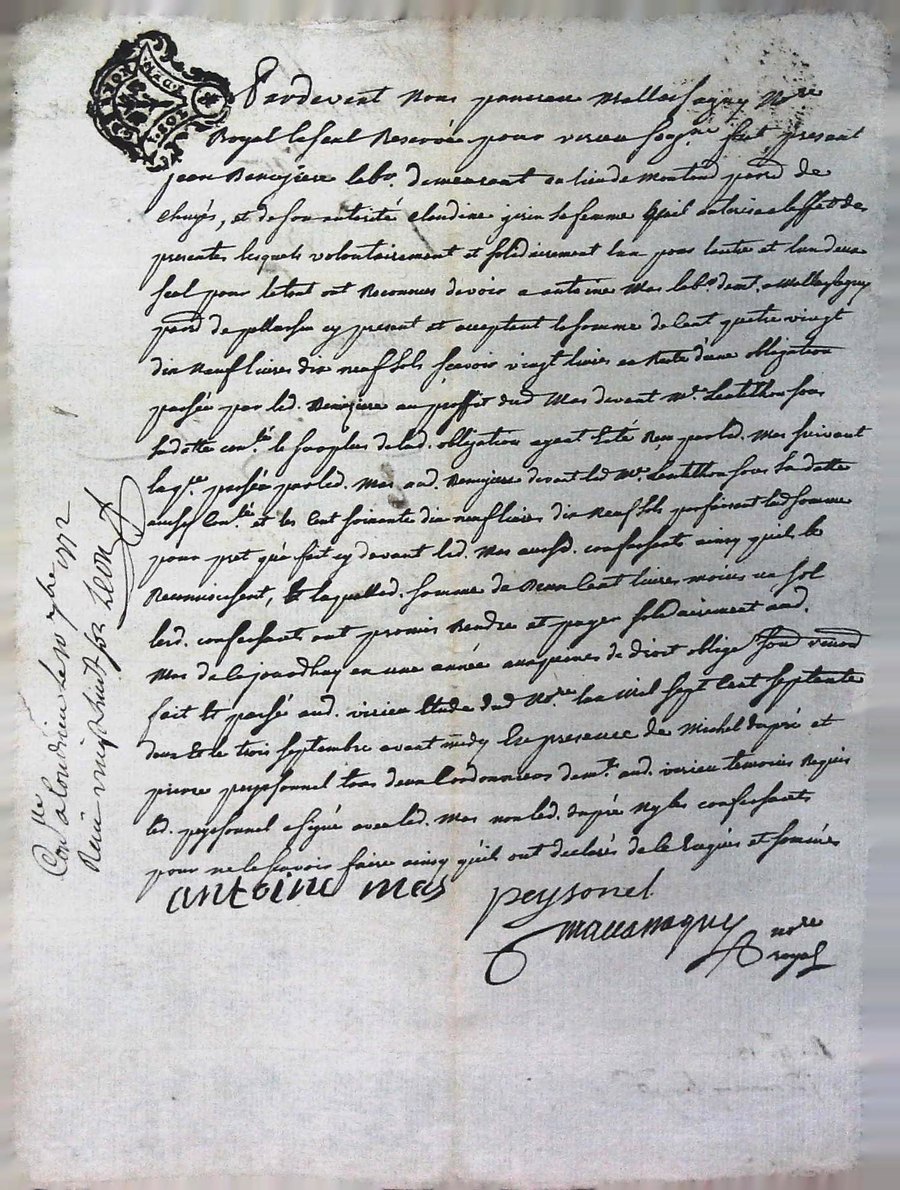 Pardevant Nous pancrau Mallassagny No.re
Royal le seul Reservée pour virieu soug.né fut present
jean Benejiere labo.r demeurant au lieu de Montend paroisse de
chuyés, et de son autorité claudine girin sa femme quil autorise a leffet des
presentes lesquels volontairement et solidairement lun pour lautre et lun deux
seul pour le tout ont Reconnus devoir a antoine Mas labo.r demt. a Mallassagny
paroisse de pellussin cy present et acceptant la somme de Cent quatre vingt
dix Neuf livres dix neuf sols scavoir vingt livres en Reste d'une obligation
passée par led. Benejiere au proffit dud Mas devant M.e sous
sa datte con.lé le surplus de lad. obligation ayant été Reçu par led. Mas suivant
la q.ce passée par led. Mas aud. Benejiere devant led M.e sous sa datte
aussy Con.lé et les Cent soixante dix neuf livres dix Neuf sols parfaisant lad somme
pour pret qu'a fait cy devant led. Mas auxsd. confessants ainsy quil le
Reconnoissent, Et laquelle d. somme de Deux Cent livres moins un sol
lesd. confessants ont promis Rendre et payer solidairement aud.
Mas de ce jourdhuy en une année aux peines de droit oblige
fait et passé aud. virieu Etude dud No.re lan Mil sept Cent septante
deux Et le trois septembre avant midy En presence de Michel dupré et
pierre peyssonnel tous deux Cordonniers demt. aud. virieu temoins Requis
led. peyssonnel a signé avec led. Mas non led. dupré Ny les confessants
pour ne le scavoir faire ainsy qu'il ont declarés de ce Enquis et sommés
antoine mas
peysonel
mallassagny no.re
royal
Con.llé a Condrieu le 10 7bre 1772
Reçu vingt huit sols Leon